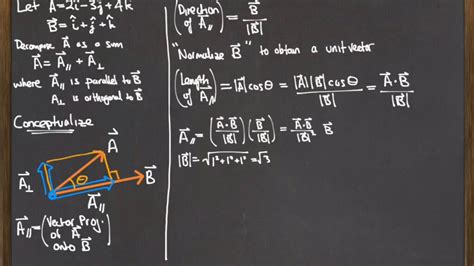 Let A⃗=2î-3ĵ+4k̂
B⃗=î+ĵ+k̂
Decompose A⃗ as a sum
A⃗=A⃗∥+A⃗⊥
where A⃗∥ is parallel to B⃗
A⃗⊥ is orthogonal to B⃗
Conceptualize
A⃗
A⃗⊥
θ
B⃗
A⃗∥
A⃗∥=(Vector Proj. of A⃗ onto B⃗)
(Direction of A⃗∥)=B⃗/|B⃗|
"Normalize B⃗" to obtain a unit vector
(Length of A⃗∥)=|A⃗|cosθ=|A⃗||B⃗|cosθ/|B⃗|=A⃗·B⃗/|B⃗|
A⃗∥=(A⃗·B⃗/|B⃗|)(B⃗/|B⃗|)=A⃗·B⃗/|B⃗|² B⃗
|B⃗|=√1²+1²+1²=√3